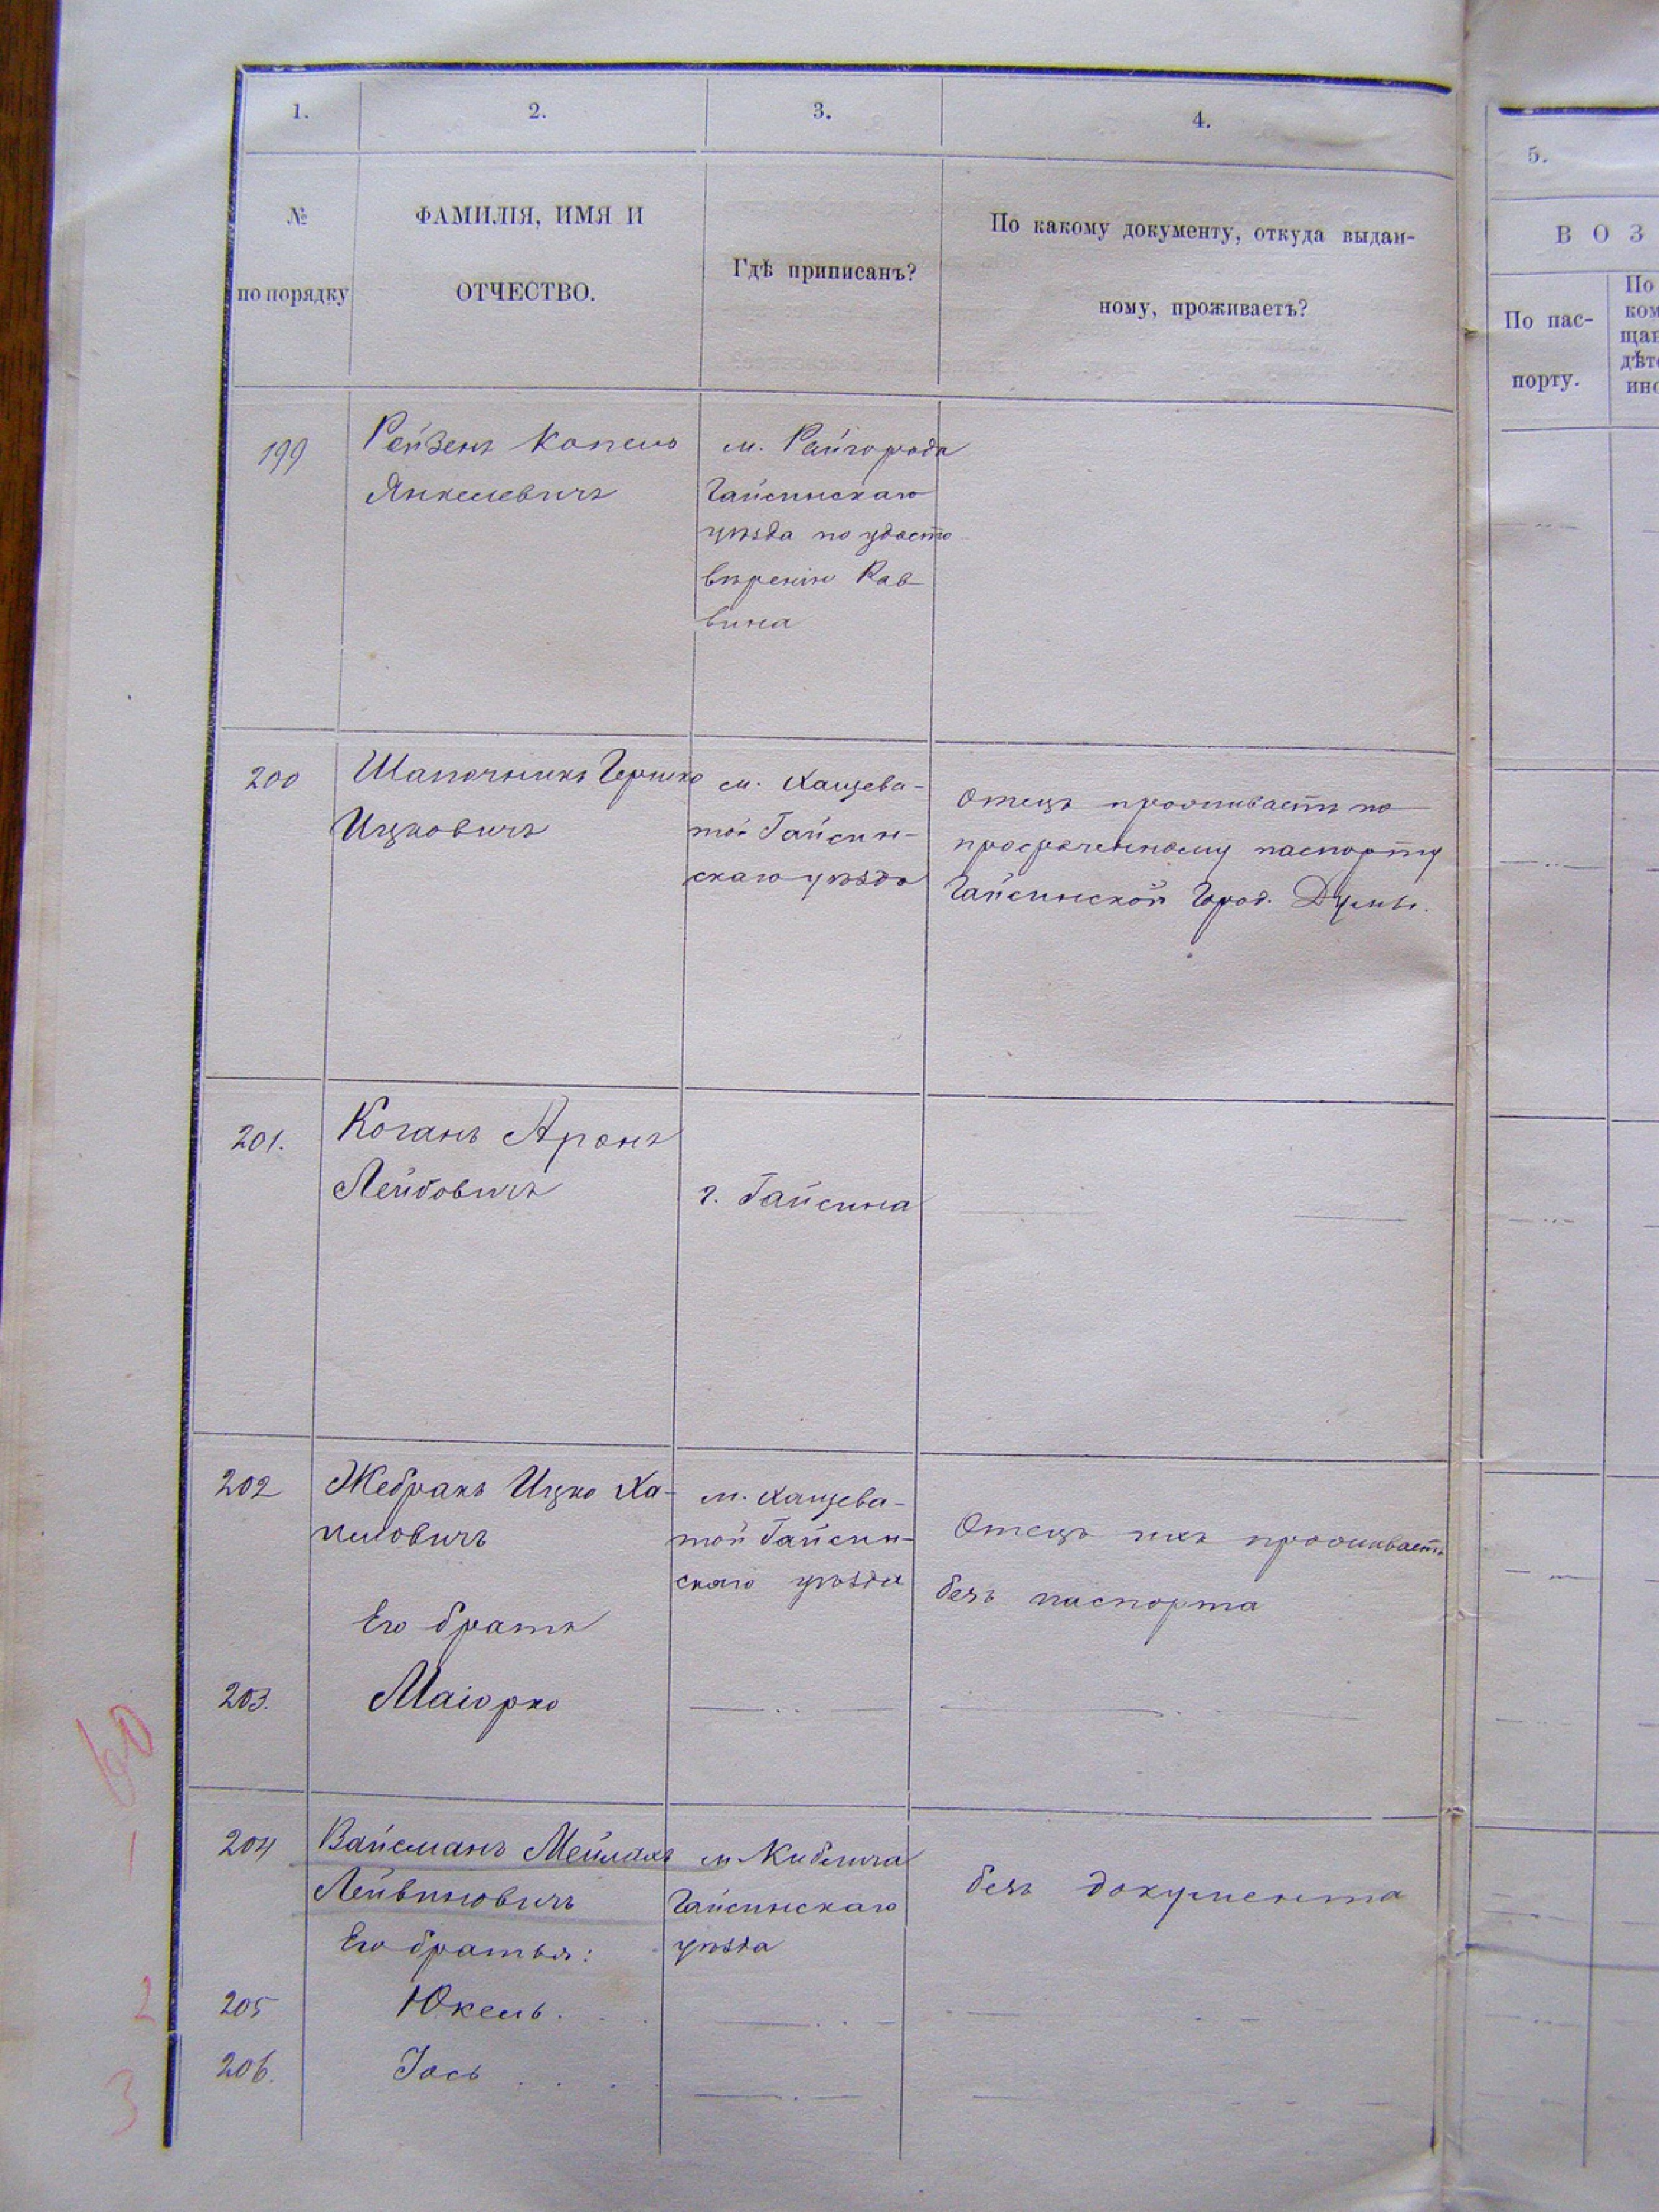 1.
2.
3.
4.
5.
№
по порядку
ФАМИЛІЯ, ИМЯ И
ОТЧЕСТВО.
Гдѣ приписанъ?
По какому документу, откуда выдан-
ному, проживаетъ?
ВОЗ
По пас-
порту.
По
ком
щан
дѣт
199
Рейзенъ Копель
Янкелевичъ
м. Райгорода
Гайсинскаго
уѣзда по удосто
вѣренію Рав
вина
200
Шапочникъ Гершко
Ицковичъ
м. Хащева-
той Гайсин-
скаго уѣзда
Отецъ проживаетъ по
просроченному паспорту
Гайсинской Город. Думы.
201.
Коганъ Аронъ
Лейбовичъ
г. Гайсина
202
Жебракъ Ицко Ха-
имовичъ
м. Хащева-
той Гайсин-
скаго уѣзда
Отецъ ихъ проживаетъ
безъ паспорта
Его братъ
203.
Маіорко
204
Вайсманъ Мейлахъ
Лейвиковичъ
м. Киблича
Гайсинскаго
уѣзда
безъ документа
Его братья:
205
Юкель.
206.
Іось
60
1
2
3